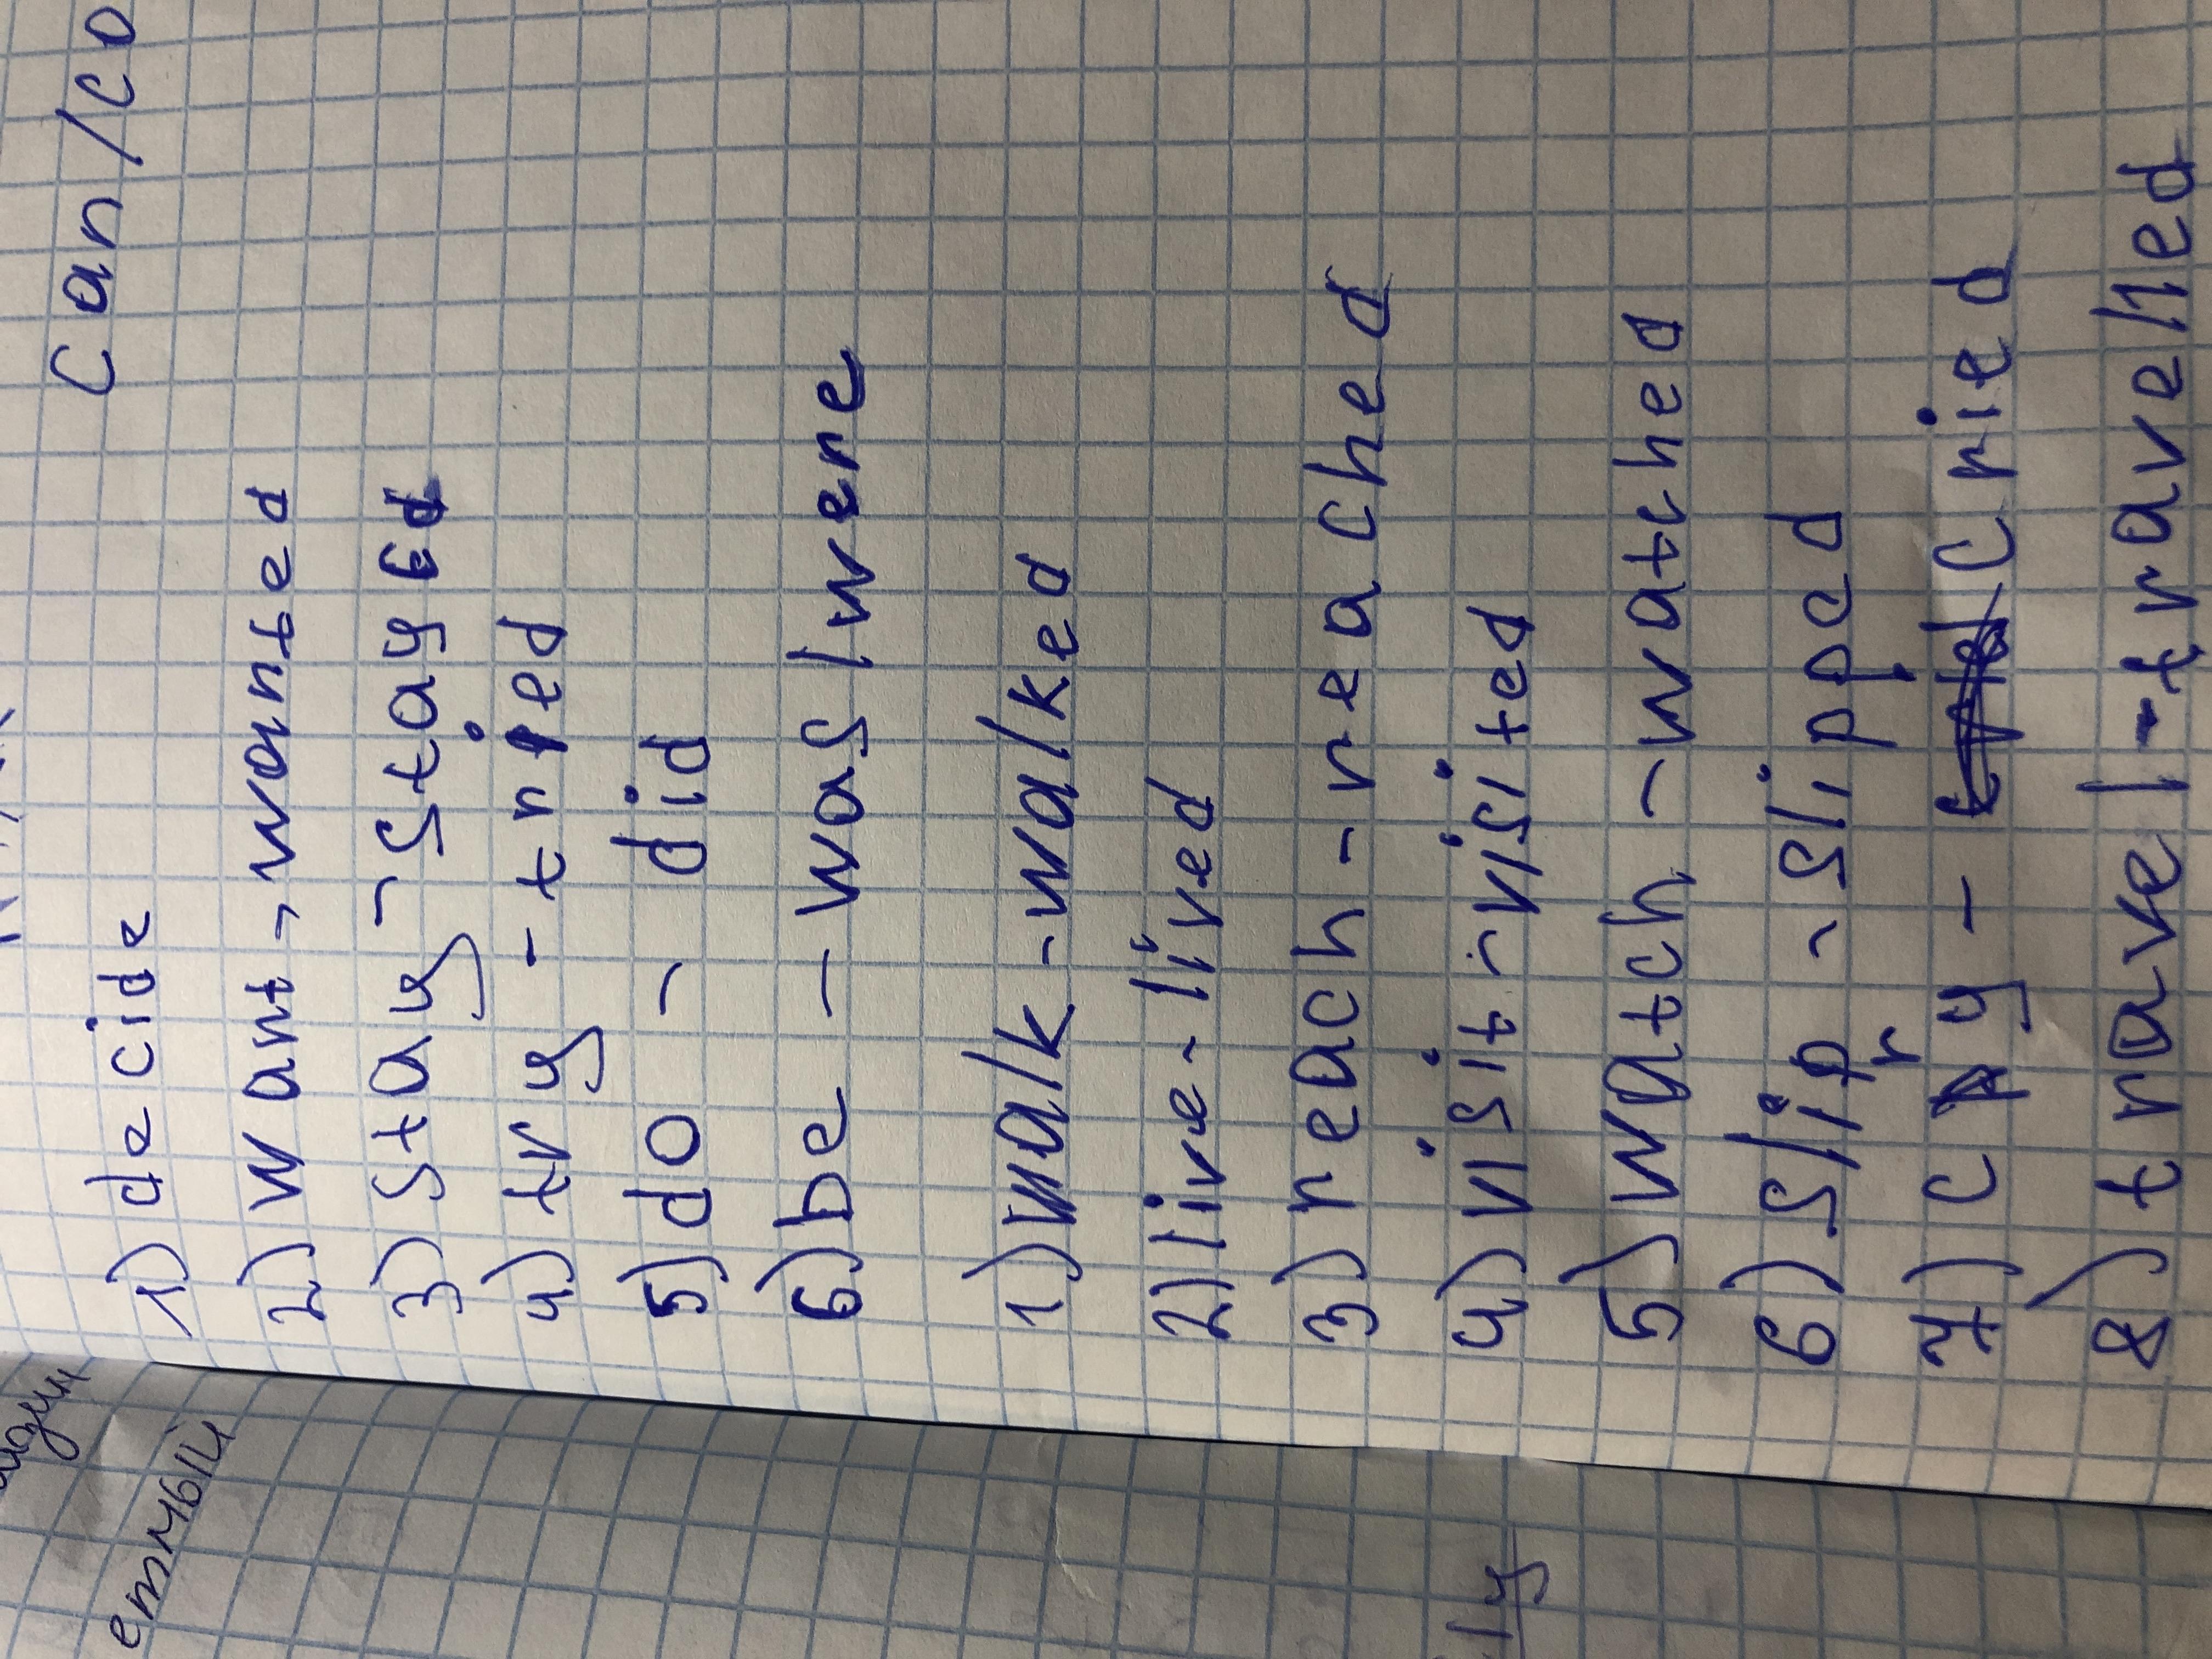 Can/co
1) decide
2) want - wanted
3) stay - stayed
4) try - tried
5) do - did
6) be - was/were
1) walk - walked
2) live - lived
3) reach - reached
4) visit - visited
5) watch - watched
6) slip - slipped
7) cry - cried
8) travel - travelled
етмый
ly